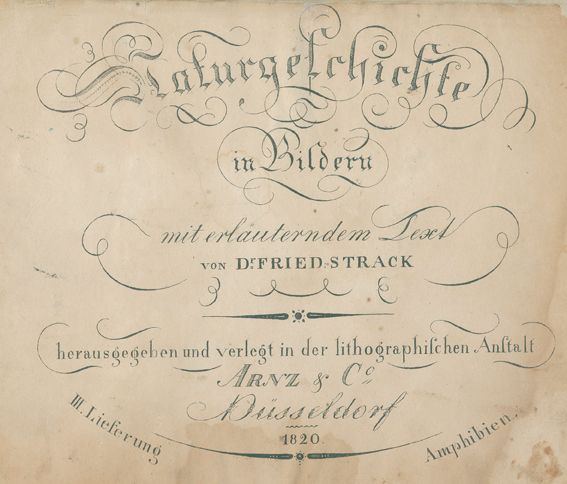 Naturgeſchichte
in Bildern
mit erläuterndem Text
von Dr. FRIED. STRACK
herausgegeben und verlegt in der lithographiſchen Anſtalt
ARNZ & Co.
Düsseldorf
1820.
III. Lieferung
Amphibien.